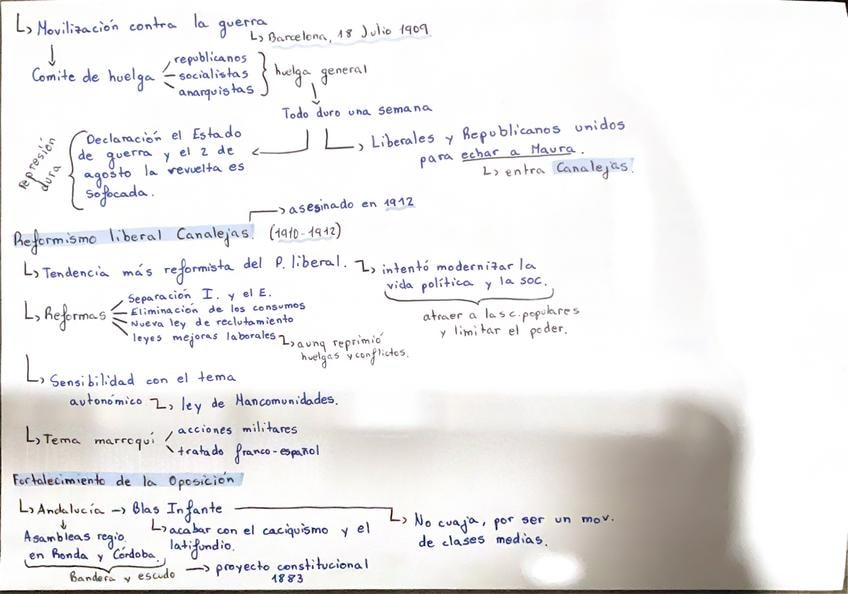 ↳ Movilización contra la guerra
↳ Barcelona, 18 Julio 1909
Comite de huelga
republicanos
socialistas
anarquistas
huelga general
Todo duro una semana
represión
dura
Declaración el Estado
de guerra y el 2 de
agosto la revuelta es
sofocada.
Liberales y Republicanos unidos
para echar a Maura.
↳ entra Canalejas.
→ asesinado en 1912
Reformismo liberal Canalejas. (1910-1912)
↳ Tendencia más reformista del P. liberal.
↳ intentó modernizar la
vida política y la soc.
atraer a las c. populares
y limitar el poder.
↳ Reformas
Separación I. y el E.
Eliminación de los consumos
Nueva ley de reclutamiento
leyes mejoras laborales
↳ aunq reprimió
huelgas y conflictos.
↳ Sensibilidad con el tema
autonómico ↳ ley de Mancomunidades.
↳ Tema marroquí
acciones militares
tratado franco-español
Fortalecimiento de la Oposición
↳ Andalucía → Blas Infante
↳ No cuaja, por ser un mov.
de clases medias.
Asambleas regio.
en Ronda y Córdoba.
↳ acabar con el caciquismo y el
latifundio.
Bandera y escudo → proyecto constitucional
1883